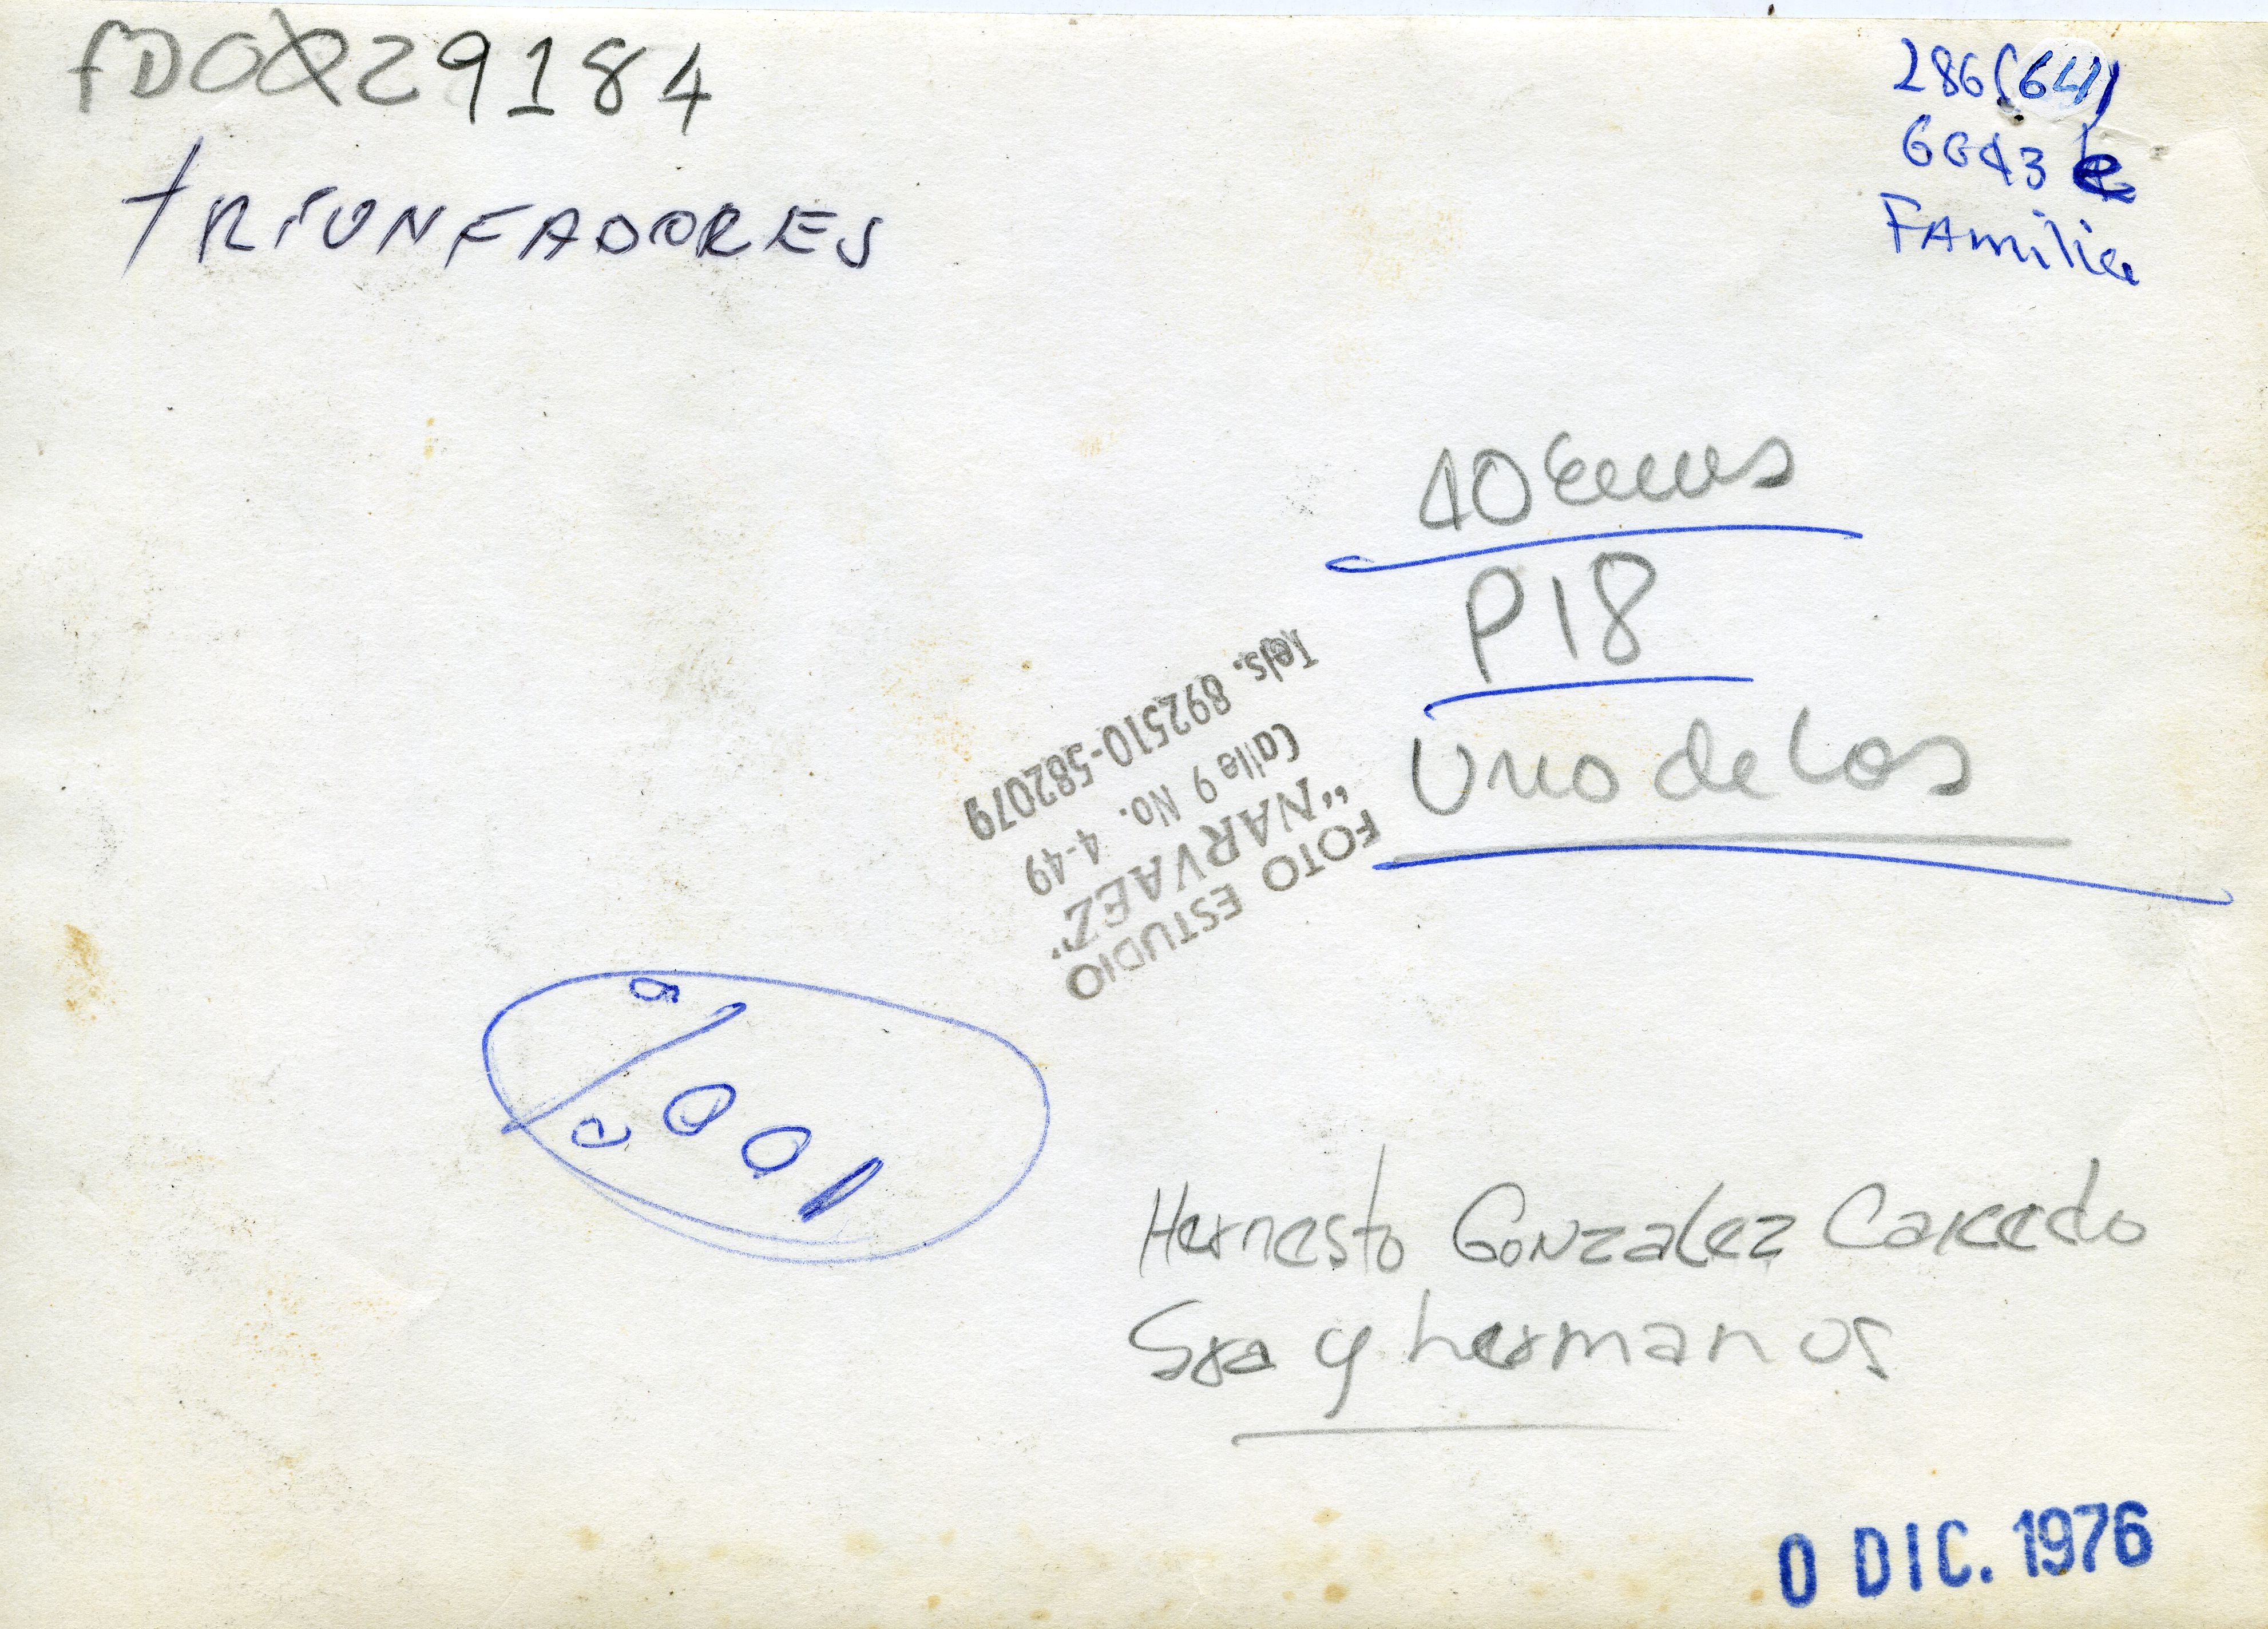 fD0029184
tRIUNFADORES
286(64)
6643
FAmilia
40 Ems
P18
Uno de Los
FOTO ESTUDIO
"NARVAEZ"
Calle 9 No. 4-49
Tels. 892510-582079
100 %
Hernesto Gonzalez Caicedo
Sra y hermanos
0 DIC. 1976